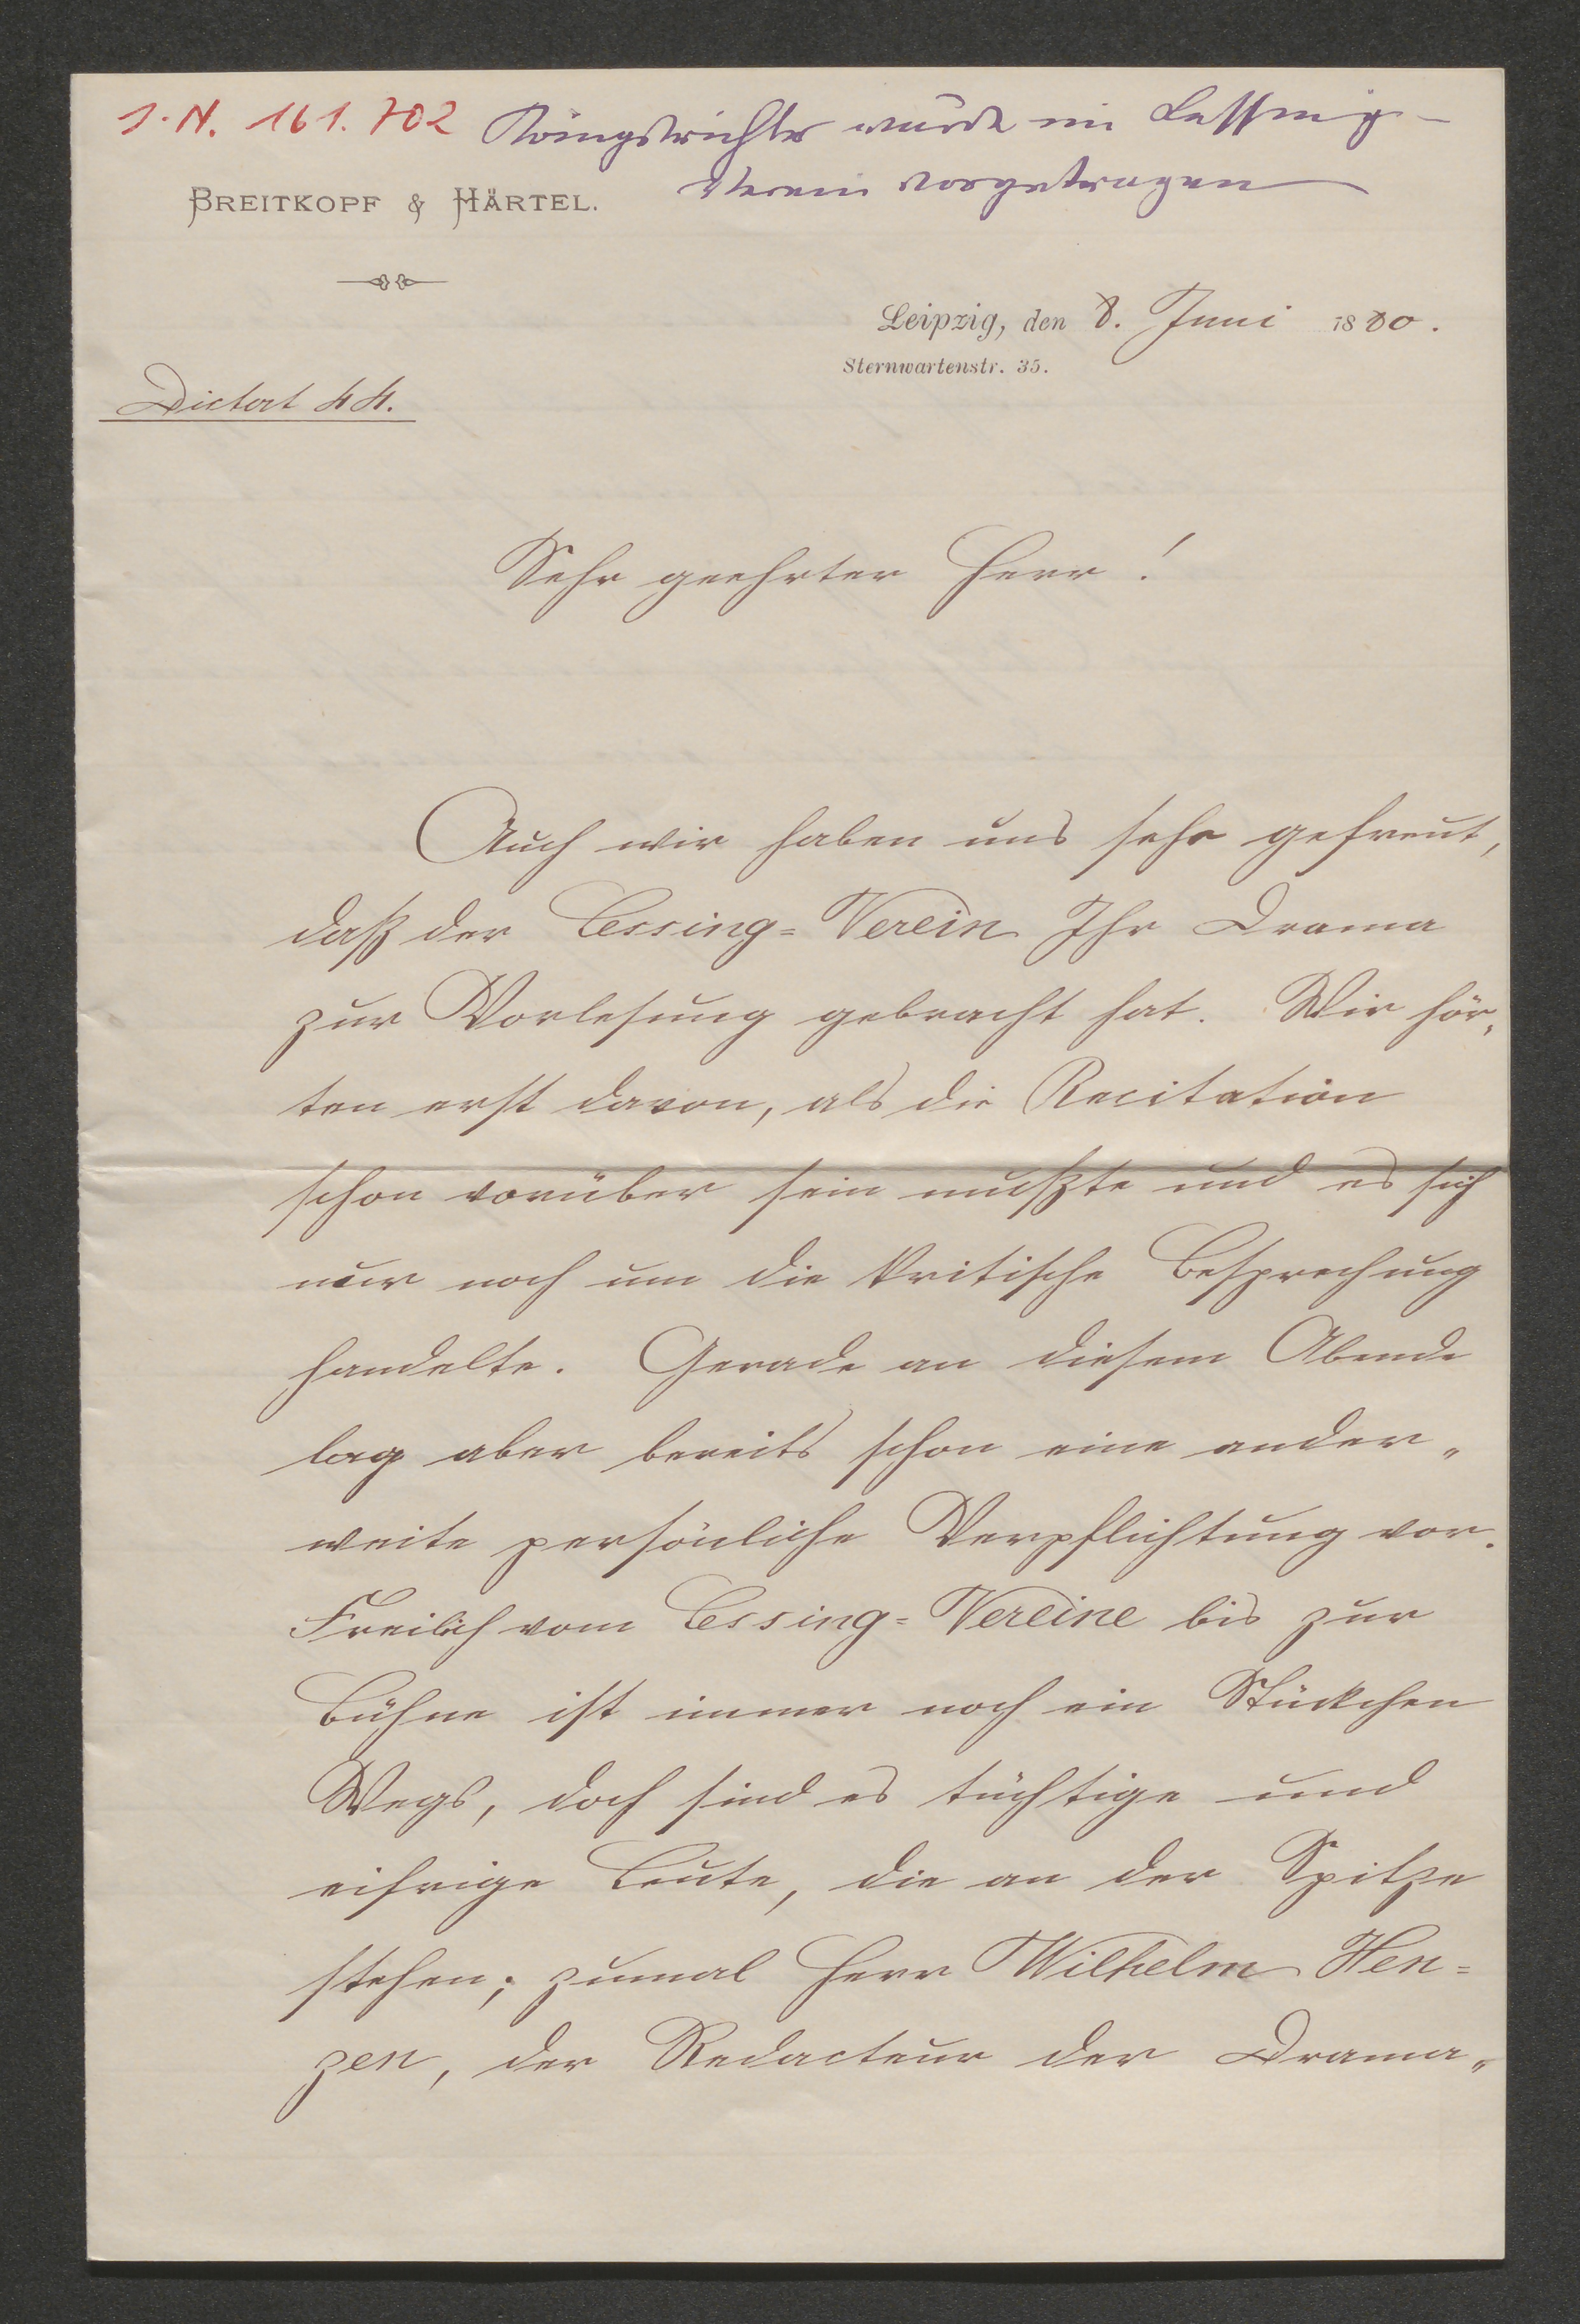 I. N. 161.702 Königsrichter wurde im Lessing-
Verein vorgetragen
BREITKOPF & HÄRTEL.
Leipzig, den 8. Juni 1880.
Sternwartenstr. 35.
Dictat
Sehr geehrter Herr!
Auch wir haben uns sehr gefreut,
daß der Lessing=Verein Ihr Drama
zur Vorlesung gebracht hat. Wir hör„
ten erst davon, als die Recitation
schon vorüber sein mußte und es sich
nur noch um die kritische Besprechung
handelte. Gerade an diesem Abende
lag aber bereits schon eine ander„
weite persönliche Verpflichtung vor.
Freilich vom Lessing=Vereine bis zur
Bühne ist immer noch ein Stückchen
Wegs, doch sind es tüchtige und
eifrige Leute, die an der Spitze
stehen; zumal Herr Wilhelm Hen=
zen, der Redacteur der Drama„